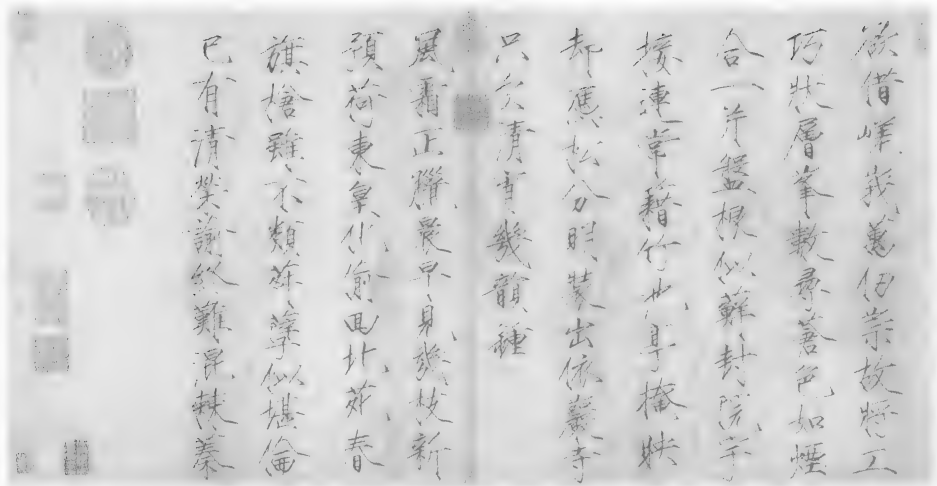 欲借嵯峩萬仞崇故將工
巧狀層峯數尋蒼色如煙
合一片盤根似蘚封院宇
接連常藉竹池亭掩映
却憑松分明裝出依巖寺
只欠清宵幾韻鐘
風霜正臘晨早見幾枝新
預荷東皇化偷回北苑春
旗槍雖不類荈蘖似堪倫
已有清榮誚終難混棘蓁